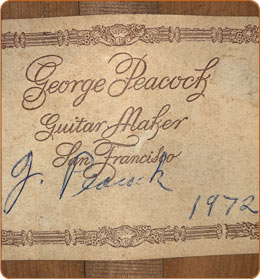 George Peacock
Guitar Maker
San Francisco
G. Peacock
1972